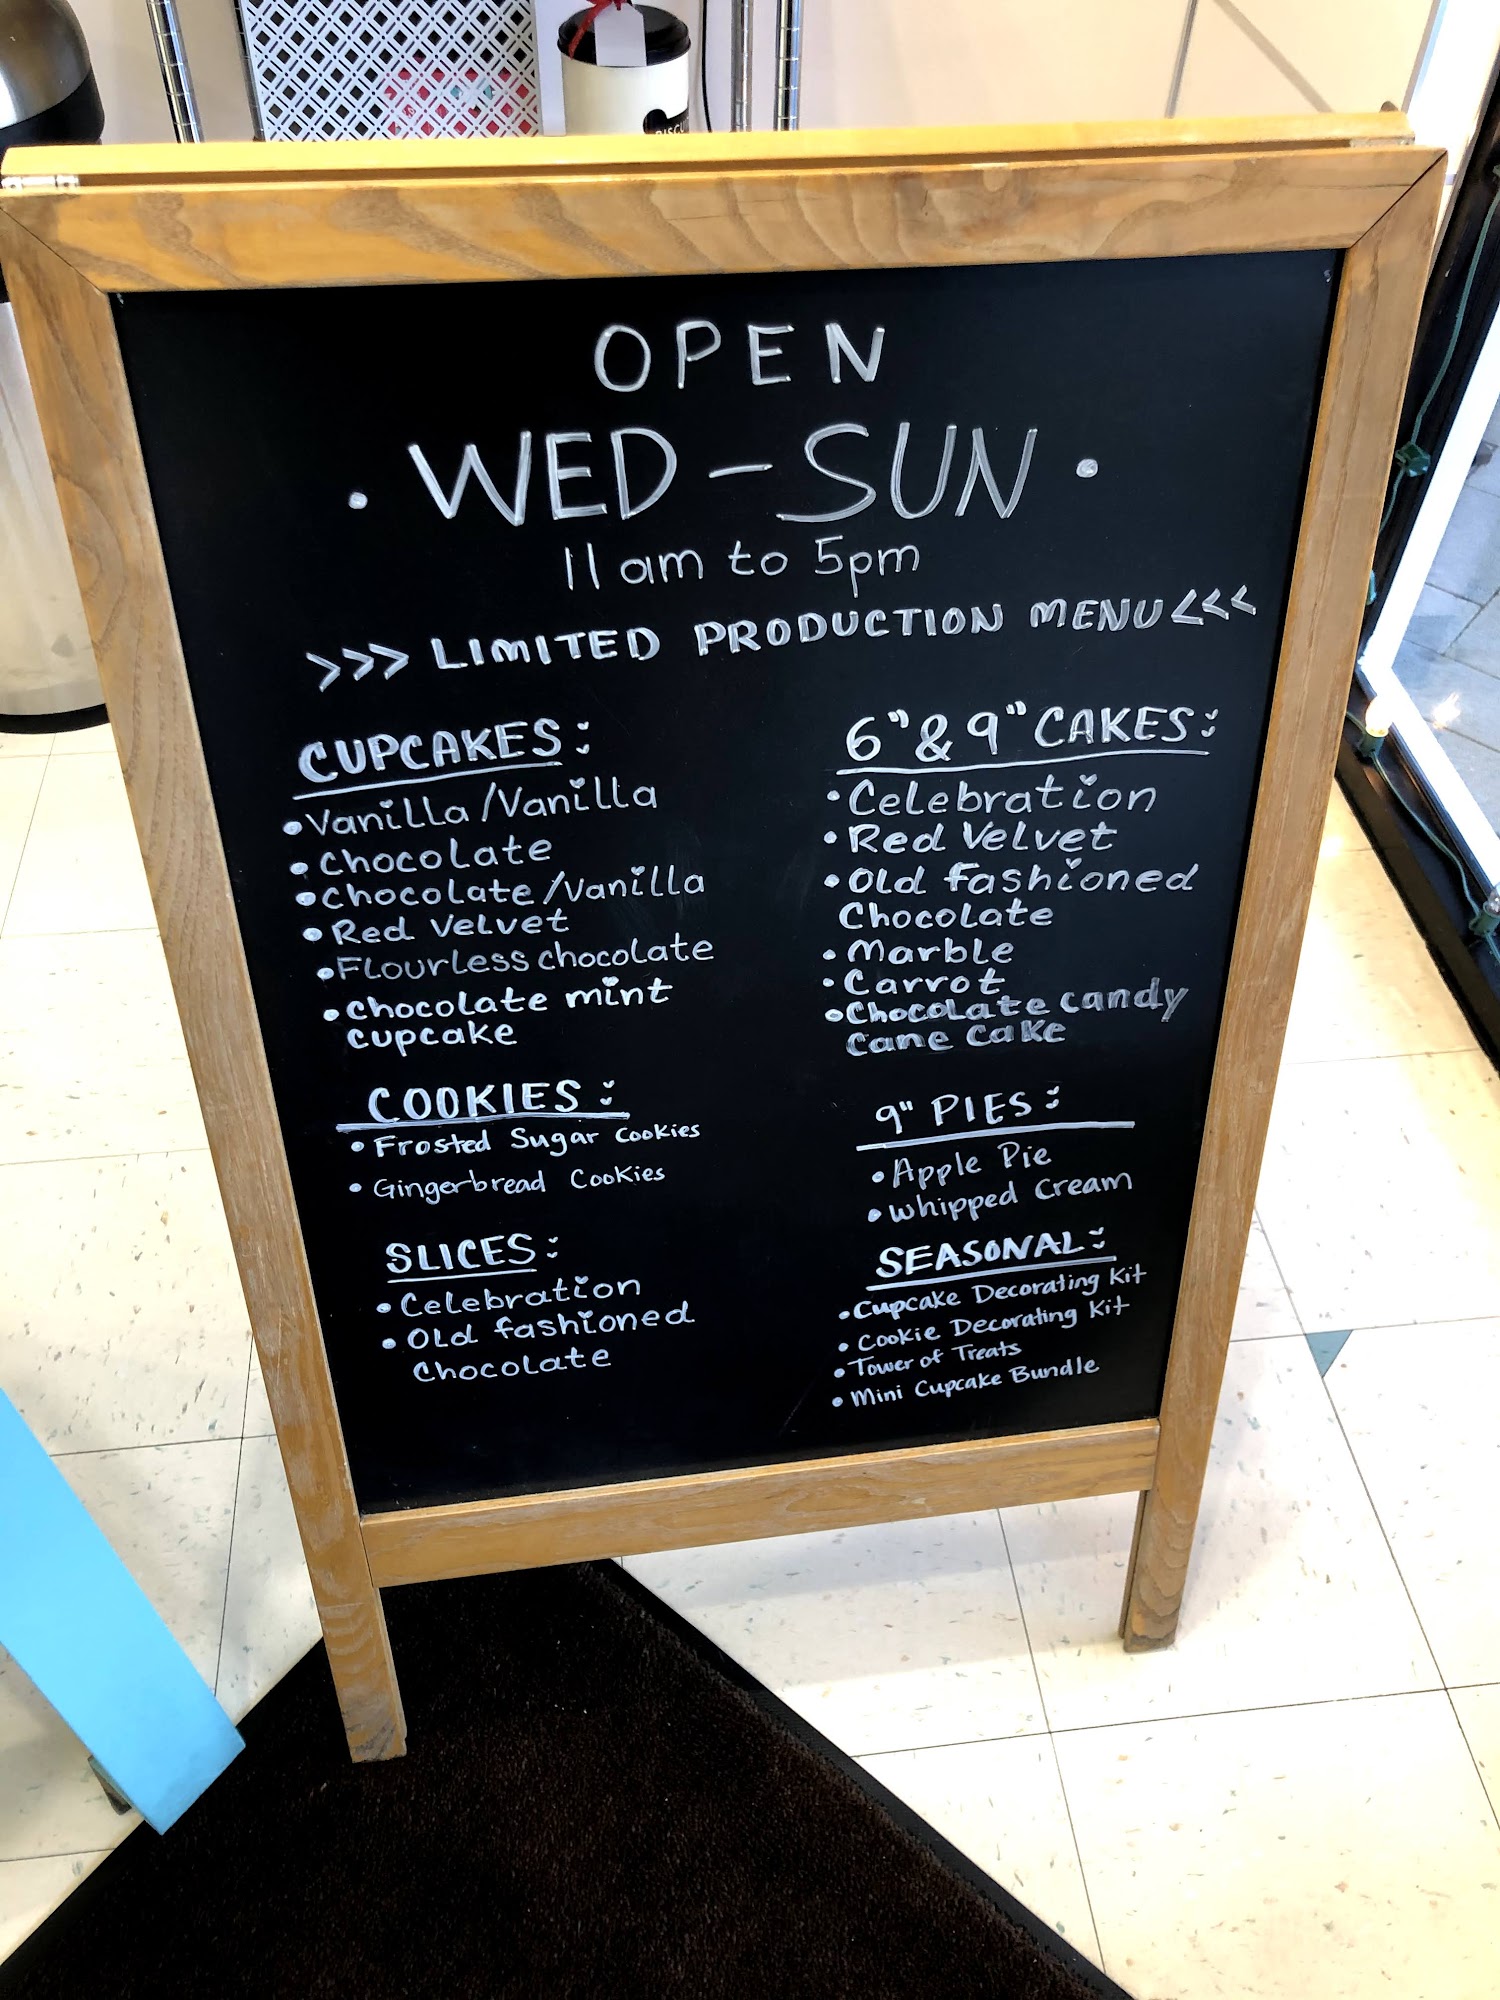 OPEN
• WED - SUN •
11am to 5pm
>>> LIMITED PRODUCTION MENU <<<
CUPCAKES:
• Vanilla/Vanilla
• Chocolate
• Chocolate/Vanilla
• Red Velvet
• Flourless chocolate
• Chocolate mint
cupcake
COOKIES:
• Frosted Sugar Cookies
• Gingerbread Cookies
SLICES:
• Celebration
• Old fashioned
Chocolate
6" & 9" CAKES:
• Celebration
• Red Velvet
• Old fashioned
Chocolate
• Marble
• Carrot
• Chocolate candy
cane cake
9" PIES:
• Apple Pie
• Whipped Cream
SEASONAL:
• Cupcake Decorating Kit
• Cookie Decorating Kit
• Tower of Treats
• Mini Cupcake Bundle